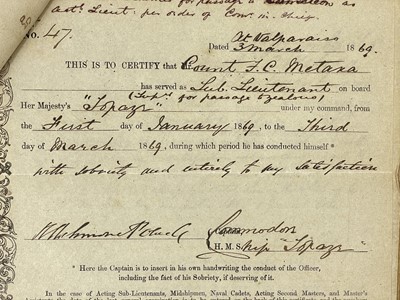 for passage
act. Lieut. per orders of Com. in Chief.
No. 47.
At Valparaiso
Dated 3 March 1869.
THIS IS TO CERTIFY that Count F. C. Metaxa
has served as Sub. Lieutenant on board
(Sup.y for passage Zealous)
Her Majesty's "Topaze" under my command, from
the First day of January 1869 to the Third
day of March 1869, during which period he has conducted himself *
with sobriety and entirely to my satisfaction
Commodore
H. M. Ship "Topaze"
* Here the Captain is to insert in his own handwriting the conduct of the Officer,
including the fact of his Sobriety, if deserving of it.
In the case of Acting Sub-Lieutenants, Midshipmen, Naval Cadets, Acting Second Masters, and Master's